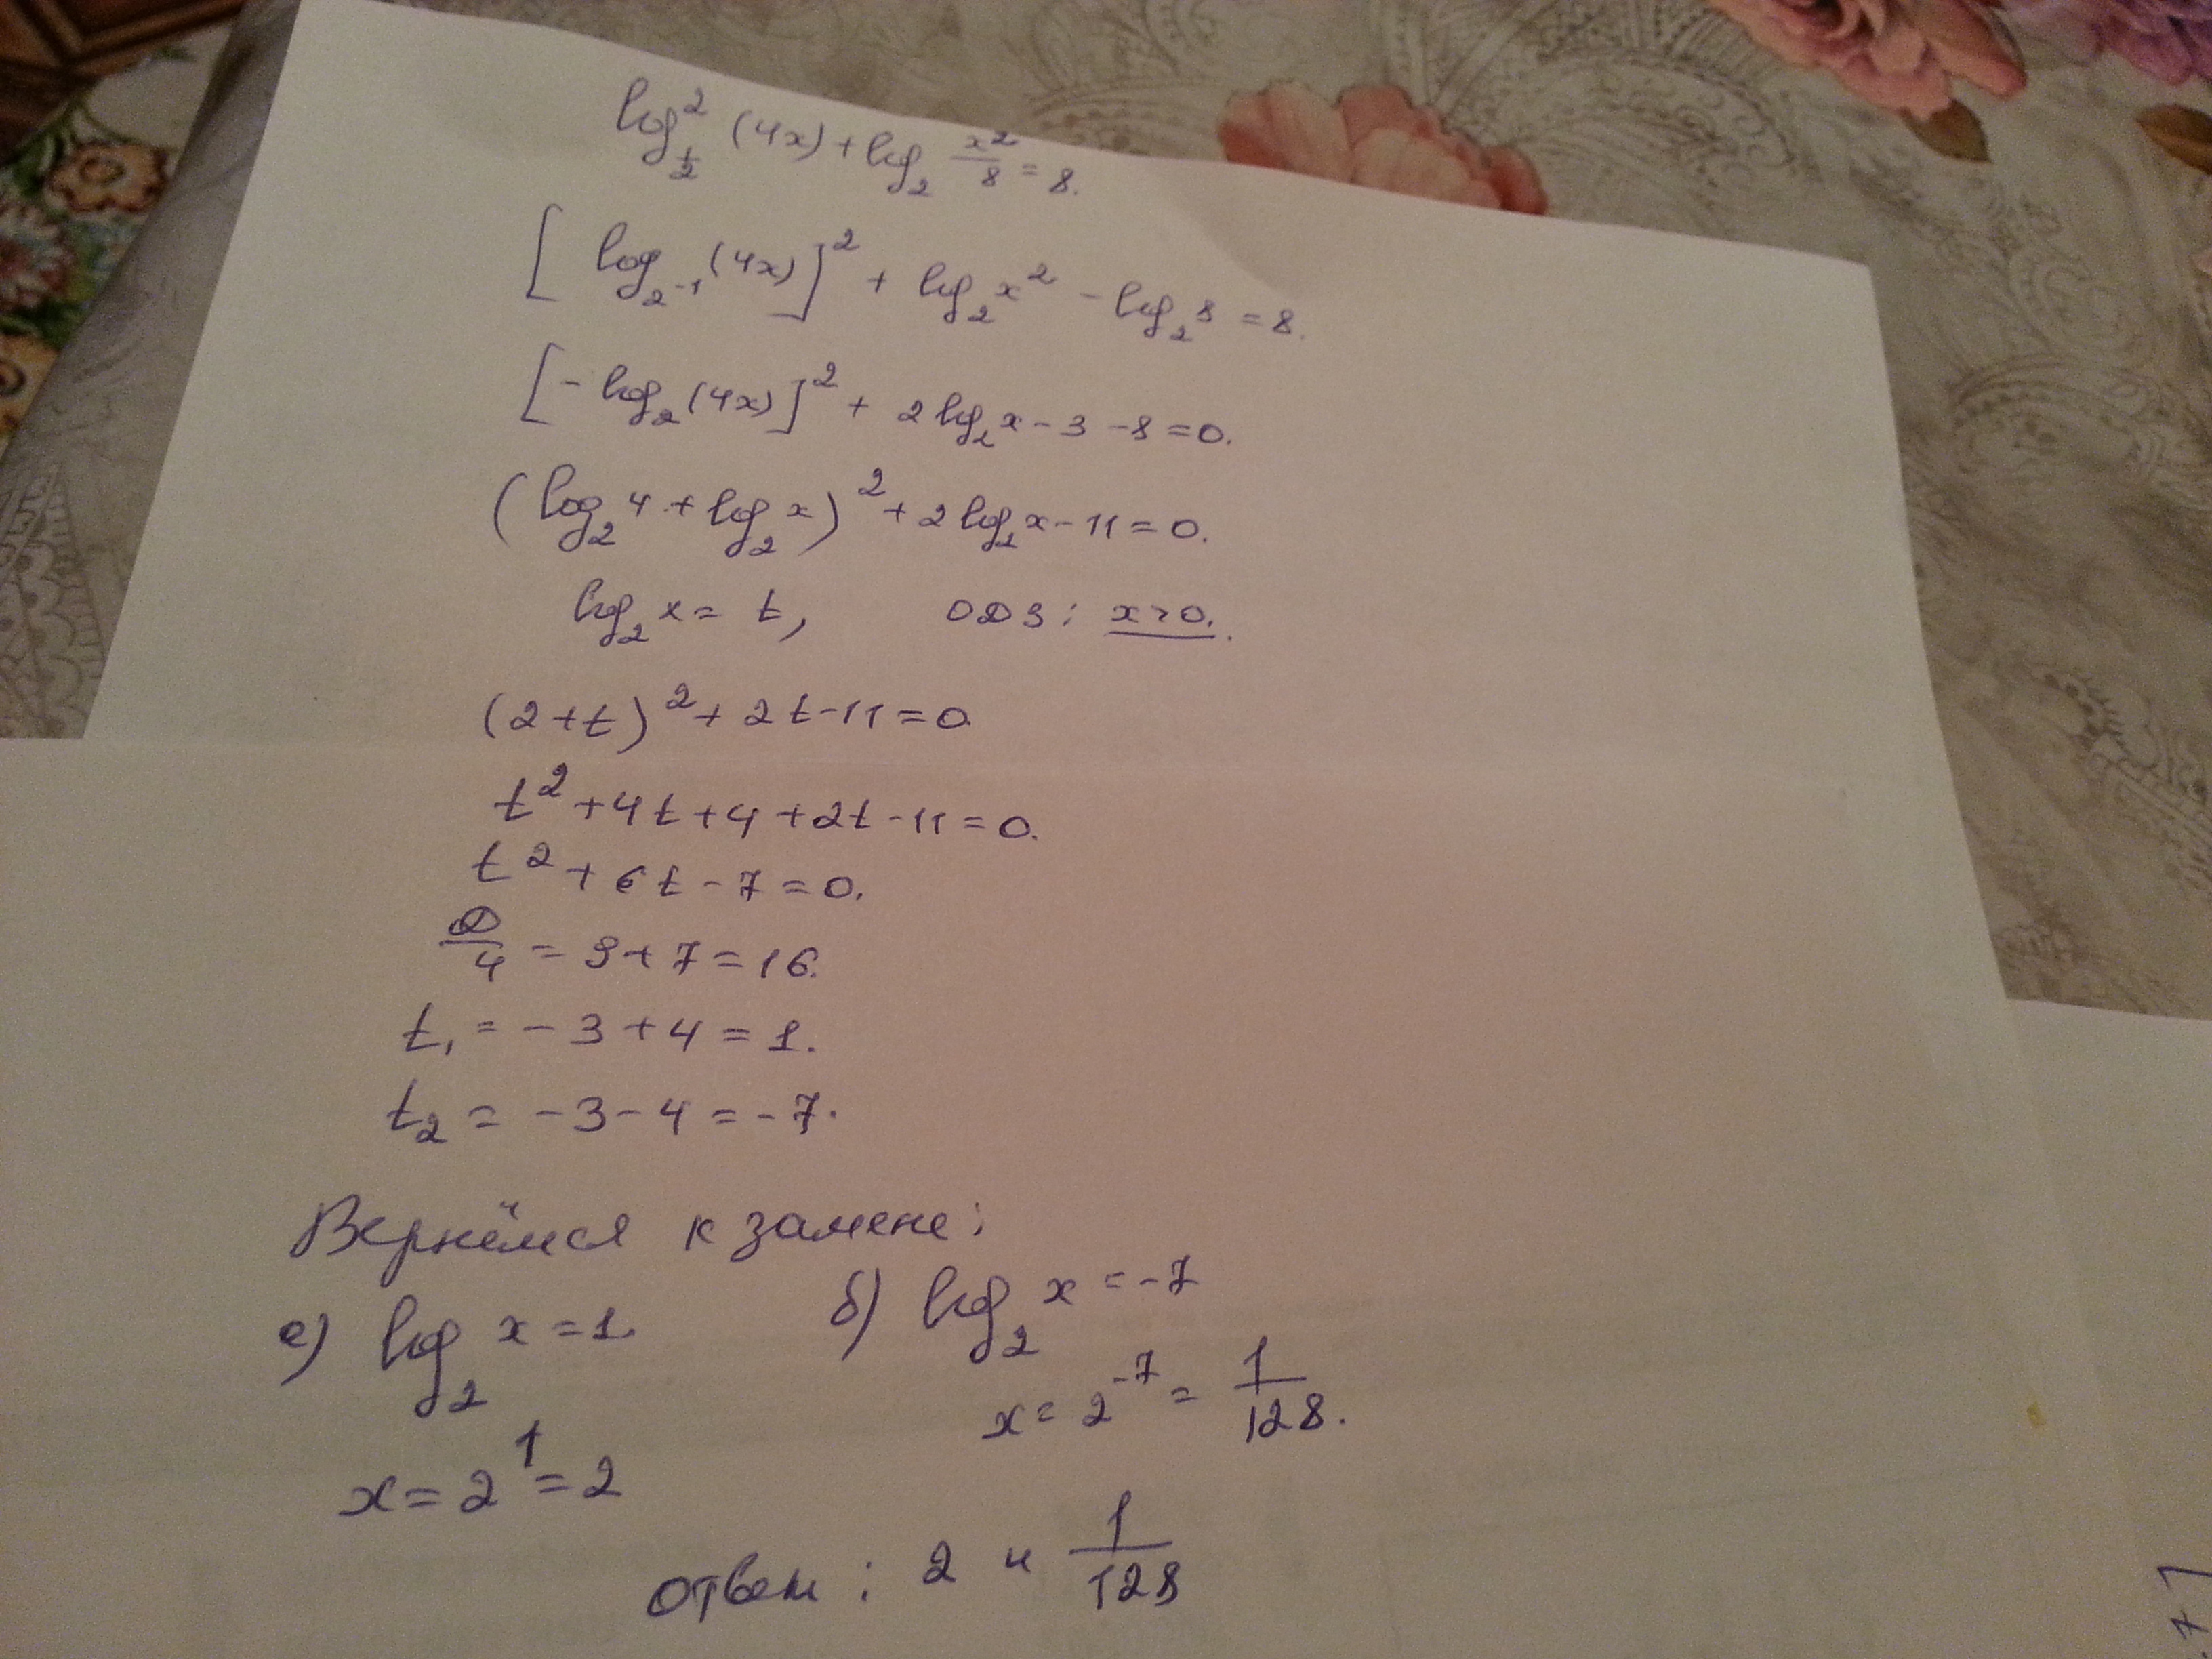 log²_{1/2} (4x) + log₂ x²/8 = 8.
[log_{2⁻¹} (4x)]² + log₂ x² - log₂ 8 = 8.
[- log₂ (4x)]² + 2 log₂ x - 3 - 8 = 0.
(log₂ 4 + log₂ x)² + 2 log₂ x - 11 = 0.
log₂ x = t, ОДЗ: x > 0.
(2 + t)² + 2t - 11 = 0
t² + 4t + 4 + 2t - 11 = 0.
t² + 6t - 7 = 0.
D/4 = 9 + 7 = 16.
t₁ = -3 + 4 = 1.
t₂ = -3 - 4 = -7.
Вернёмся к замене:
а) log₂ x = 1. б) log₂ x = -7
x = 2⁻⁷ = 1/128.
x = 2¹ = 2
ответ: 2 и 1/128